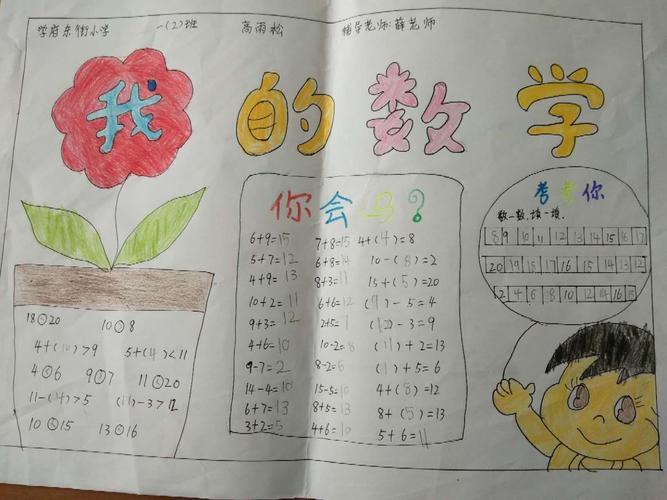 学府东街小学 一(2)班 高雨松 辅导老师:薛老师
我的数学
你会吗?
6+9=15 7+8=15 4+(4)=8
5+7=12 6+8=14 10-(8)=2
4+9=13 8+3=11 15+(5)=20
10+2=11 6+6=12 (9)-5=4
9+3=12 2+5=7 (12)-3=9
4+6=10 10-2=8 (11)+2=13
9-7=2 8-2=6 (1)+5=6
14-4=10 15-5=10 4+(8)=12
6+7=13 8+5=13 8+(5)=13
3+2=5 4+6=10 5+6=11
考考你
数一数,填一填.
8 9 10 11 12 13 14 15 16 17
20 19 18 17 16 15 14 13 12
2 4 6 8 10 12 14 16 18
18<20 10>8
4+(10)>9 5+(4)<11
4<6 9>7 11<20
11-(4)>5 (11)-3>12
10<15 13<16